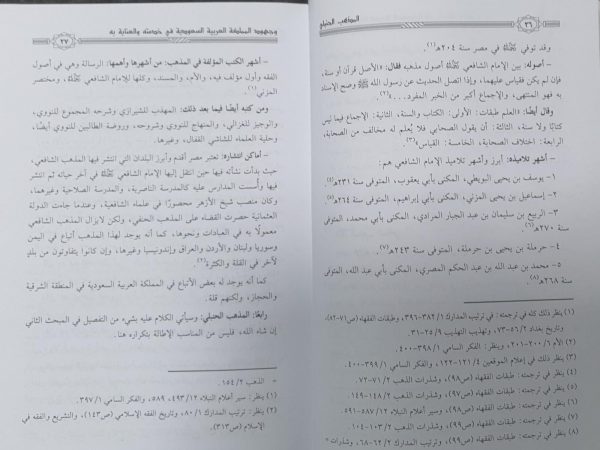 المذهب الحنبلي
٣٦
وقد توفي ﷺ في مصر سنة ٢٠٤هـ(١).
- أصوله: بين الإمام الشافعي أصول مذهبه فقال: «الأصل قرآن أو سنة،
فإن لم يكن فقياس عليهما، وإذا اتصل الحديث عن رسول الله ﷺ وصح الإسناد
به فهو المنتهى، والإجماع أكبر من الخبر المفرد...»(٢).
وقال أيضًا: العلم طبقات: الأولى: الكتاب والسنة، الثانية: الإجماع فيما ليس
كتابًا ولا سنة، الثالثة: أن يقول الصحابي فلا يُعلم له مخالف من الصحابة،
الرابعة: اختلاف الصحابة، الخامسة: القياس»(٣).
- أشهر تلاميذه: أبرز وأشهر تلاميذ الإمام الشافعي هم:
١- يوسف بن يحيى البويطي، المكنى بأبي يعقوب، المتوفى سنة ٢٣١هـ(٤).
٢- إسماعيل بن يحيى المزني، المكنى بأبي إبراهيم، المتوفى سنة ٢٦٤هـ(٥).
٣- الربيع بن سليمان بن عبد الجبار المرادي، المكنى بأبي محمد، المتوفى
سنة ٢٧٠هـ(٦).
٤- حرملة بن يحيى بن حرملة، المتوفى سنة ٢٤٣هـ(٧).
٥- محمد بن عبد الله بن عبد الحكم المصري، المكنى بأبي عبد الله، المتوفى
سنة ٢٦٨هـ(٨).
(١) ينظر ذلك كله في ترجمته: في ترتيب المدارك ٣٨٢/١-٣٩٦، وطبقات الفقهاء (ص٧١-٨٢)،
وتاريخ بغداد ٥٦/٢-٧٣، وتهذيب التهذيب ٢٥/٩-٣١.
(٢) الأم ٢٠٠/٦-٢٠١، وينظر: الفكر السامي ٣٩٨/١-٤٠٠.
(٣) ينظر ذلك في إعلام الموقعين ١٢١/٤-١٢٢، والفكر السامي ٣٩٩/١-٤٠٠.
(٤) ينظر في ترجمته: طبقات الفقهاء (ص٩٨)، وشذرات الذهب ٧١/٢-٧٢.
(٥) ينظر في ترجمته: طبقات الفقهاء (ص٩٧)، وشذرات الذهب ١٤٨/٢-١٤٩.
(٦) ينظر في ترجمته: طبقات الفقهاء (ص٩٨)، وسير أعلام النبلاء ٥٨٧/١٢-٥٩١.
(٧) ينظر في ترجمته: طبقات الفقهاء (ص٩٩)، وشذرات الذهب ١٠٣/٢-١٠٤.
(٨) ينظر في ترجمته: طبقات الفقهاء (ص٩٩)، وترتيب المدارك ٦٢/٢-٦٨، وشذرات =
وجهود المملكة العربية السعودية في خدمته والعناية به
٣٧
- أشهر الكتب المؤلفة في المذهب: من أشهرها وأهمها: الرسالة وهي في أصول
الفقه وأول مؤلف فيه، والأم، والمسند، وكلها للإمام الشافعي ﷺ، ومختصر
المزني(١).
ومن كتبه أيضًا فيما بعد ذلك: المهذب للشيرازي وشرحه المجموع للنووي،
والوجيز للغزالي، والمنهاج للنووي وشروحه، وروضة الطالبين للنووي أيضًا،
وحلية العلماء للشاشي القفال، وغيرها.
- أماكن انتشاره: تعتبر مصر أقدم وأبرز البلدان التي انتشر فيها المذهب الشافعي،
حيث بدأت نشأته فيها حين انتقل إليها الإمام الشافعي ﷺ في آخر حياته ثم انتشر
فيها وأُسست المدارس عليه كالمدرسة الناصرية، والمدرسة الصلاحية وغيرهما،
وكان منصب شيخ الأزهر محصورًا في علماء الشافعية، وعندما جاءت الدولة
العثمانية حصرت القضاء على المذهب الحنفي، ولكن لايزال المذهب الشافعي
معمولًا به في العبادات ونحوها، كما أنه يوجد لهذا المذهب أتباع في اليمن
وسوريا ولبنان والأردن والعراق وإندونيسيا وغيرها، وإن كانوا يتفاوتون من بلدٍ
لآخر في القلة والكثرة(٢).
كما أنه يوجد له بعض الأتباع في المملكة العربية السعودية في المنطقة الشرقية
والحجاز، ولكنهم قلة.
رابعًا: المذهب الحنبلي: وسيأتي الكلام عليه بشيء من التفصيل في المبحث الثاني
إن شاء الله، فليس من المناسب الإطالة بتكراره هنا.
= الذهب ١٥٤/٢.
(١) ينظر: سير أعلام النبلاء ٤٩٣/١٢، ٥٨٩، والفكر السامي ٣٩٧/١.
(٢) ينظر: ترتيب المدارك ٨٠/١، وتاريخ الفقه الإسلامي (ص١٤٣)، والتشريع والفقه في
الإسلام (ص٣١٣).